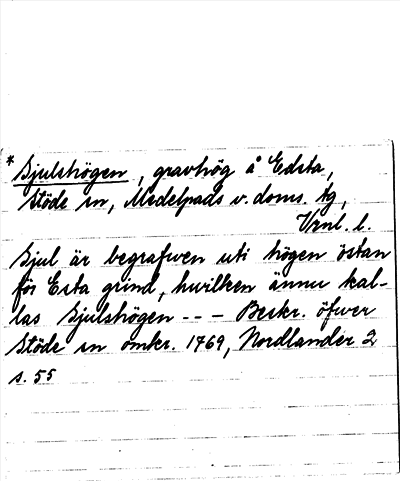 * Sjulshögen, gravhög å Edsta,
Stöde sn, Medelpads v. doms. tg,
Vrnl. l.
Sjul är begrafwen uti högen östan
för Esta grind, hwilken ännu kal-
las Sjulshögen - - - Beskr. öfwer
Stöde sn omkr. 1769, Nordlander 2
s. 55